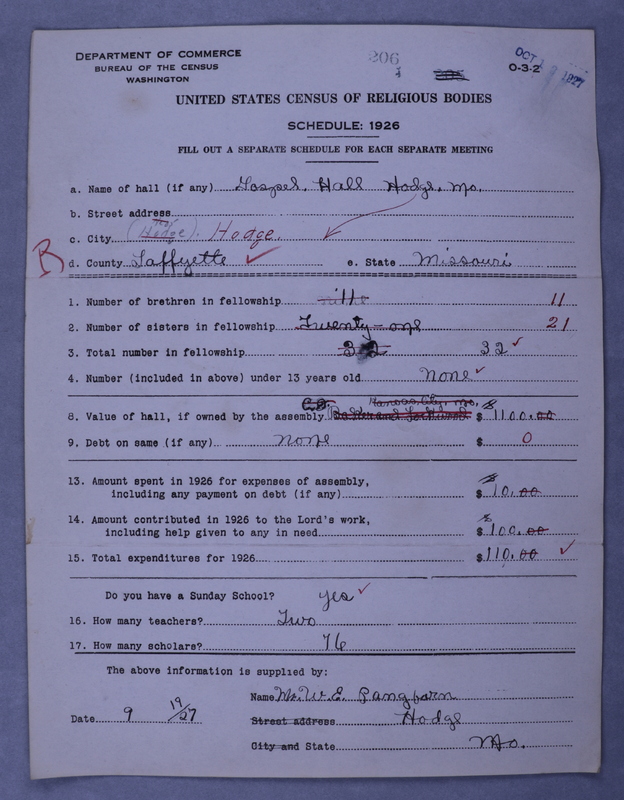 DEPARTMENT OF COMMERCE
BUREAU OF THE CENSUS
WASHINGTON
206
OCT 1927
O-3-2
UNITED STATES CENSUS OF RELIGIOUS BODIES
SCHEDULE: 1926
FILL OUT A SEPARATE SCHEDULE FOR EACH SEPARATE MEETING
a. Name of hall (if any) Gospel. Hall Hodge, Mo.
b. Street address
c. City (Hodge). Hodge.
B d. County Laffyette e. State Missouri
1. Number of brethren in fellowship 11
2. Number of sisters in fellowship Twenty-one 21
3. Total number in fellowship 32 32
4. Number (included in above) under 13 years old None
8. Value of hall, if owned by the assembly Kansas City, Mo. $ 1100.00
9. Debt on same (if any) none $ 0
13. Amount spent in 1926 for expenses of assembly,
including any payment on debt (if any) $ 10.00
14. Amount contributed in 1926 to the Lord's work,
including help given to any in need $ 100.00
15. Total expenditures for 1926 $ 110.00
Do you have a Sunday School? yes
16. How many teachers? Two
17. How many scholars? 76
The above information is supplied by:
Name Mr. W. E. Pangborn
Date 9 19/27 Street address Hodge
City and State Mo.